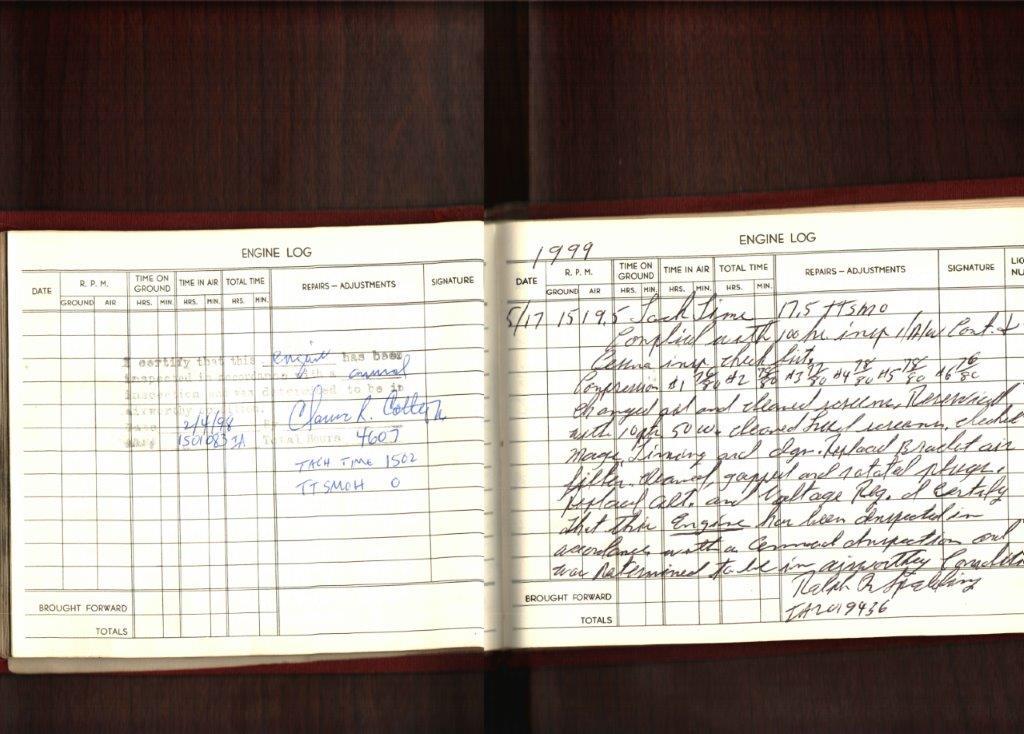 ENGINE LOG
DATE R. P. M. TIME ON GROUND TIME IN AIR TOTAL TIME REPAIRS – ADJUSTMENTS SIGNATURE
GROUND AIR HRS. MIN. HRS. MIN. HRS. MIN.
I certify that this engine has been
inspected in accordance with a annual
inspection and was determined to be in
airworthy
2/4/98
1501083IA Total Hours 4607
TACH TIME 1502
TTSMOH 0
BROUGHT FORWARD
TOTALS
ENGINE LOG
1999
DATE R. P. M. TIME ON GROUND TIME IN AIR TOTAL TIME REPAIRS – ADJUSTMENTS SIGNATURE
GROUND AIR HRS. MIN. HRS. MIN. HRS. MIN.
5/17 1519.5 Tach Time 17.5 TTSMO
Complied with 100 hr insp I/A/W Cont. &
Cessna insp check list.
Compression #1 76/80 #2 78/80 #3 77/80 #4 78/80 #5 78/80 #6 76/80
Changed oil and cleaned screens. Reserviced
with 10 qts 50 w. cleaned fuel screens, checked
Mags Timing and dgn. replaced Bracket air
filter. cleaned gapped and rotated plugs.
replaced alt. and Voltage Reg. I Certify
that this Engine has been Inspected in
accordance with a Annual Inspection and
was Determined to be in airworthy Condition
Ralph R Spalding
IA2019436
BROUGHT FORWARD
TOTALS